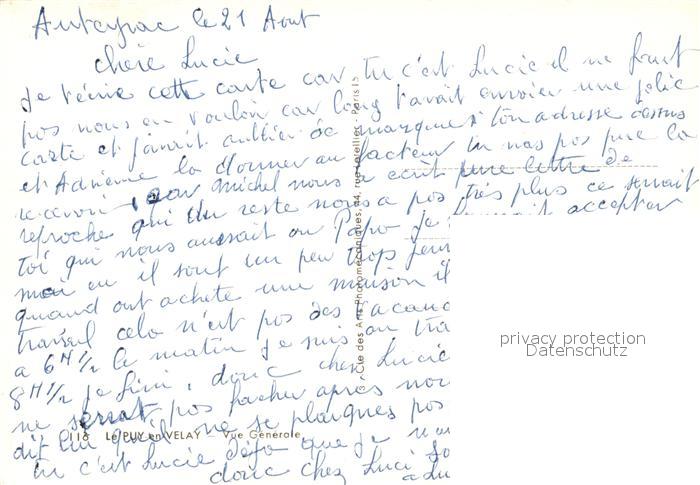 Auteyrac le 21 Aout
chère Lucie
Je t'écrie cette carte car tu c'est Lucie il ne faut
pas nous en vouloir car long t'avait envoier une jolie
carte et j'avait oublier de marquer ton adresse dessus
et Adrienne la donner au facteur tu nas pas pue la
recevoir, car Michel nous a écrit une lettre de
reproche qui du reste nous a pas très plus ce serrait
toi qui nous aurait ou Papa je accepter
moi ou il sont un peu trops
quand ont achete une maison il
travail celo n'est pas des
a 6H1/2 le matin je suis au tra
8H1/2 je fini, donc cher Lucie
ne serrat pos facher apres nou
dit lui qu'il ne se plaiques pos
tu c'est Lucie deja que je
donc chez Luci
118 LE PUY en VELAY - Vue Générale
Cie des Arts Photomécaniques, 44, rue Letellier - Paris 15
privacy protection
Datenschutz